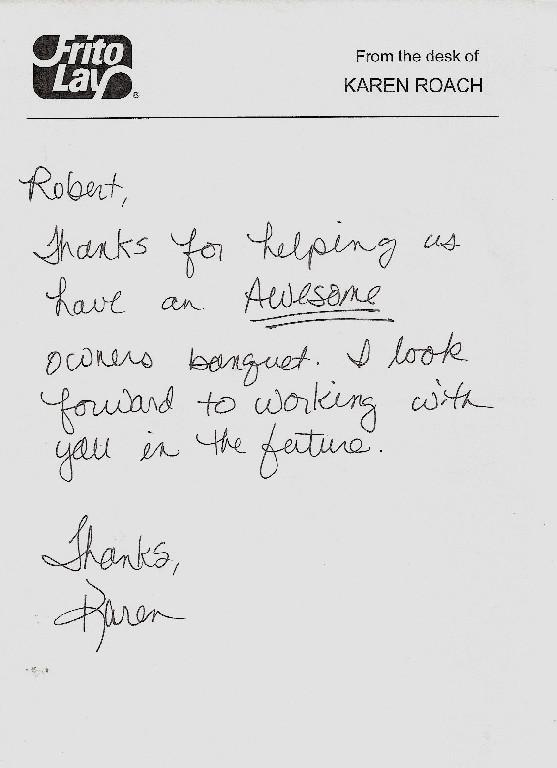 Frito
Lay
®
From the desk of
KAREN ROACH
Robert,
Thanks for helping us
have an Awesome
owners banquet. I look
forward to working with
you in the future.
Thanks,
Karen